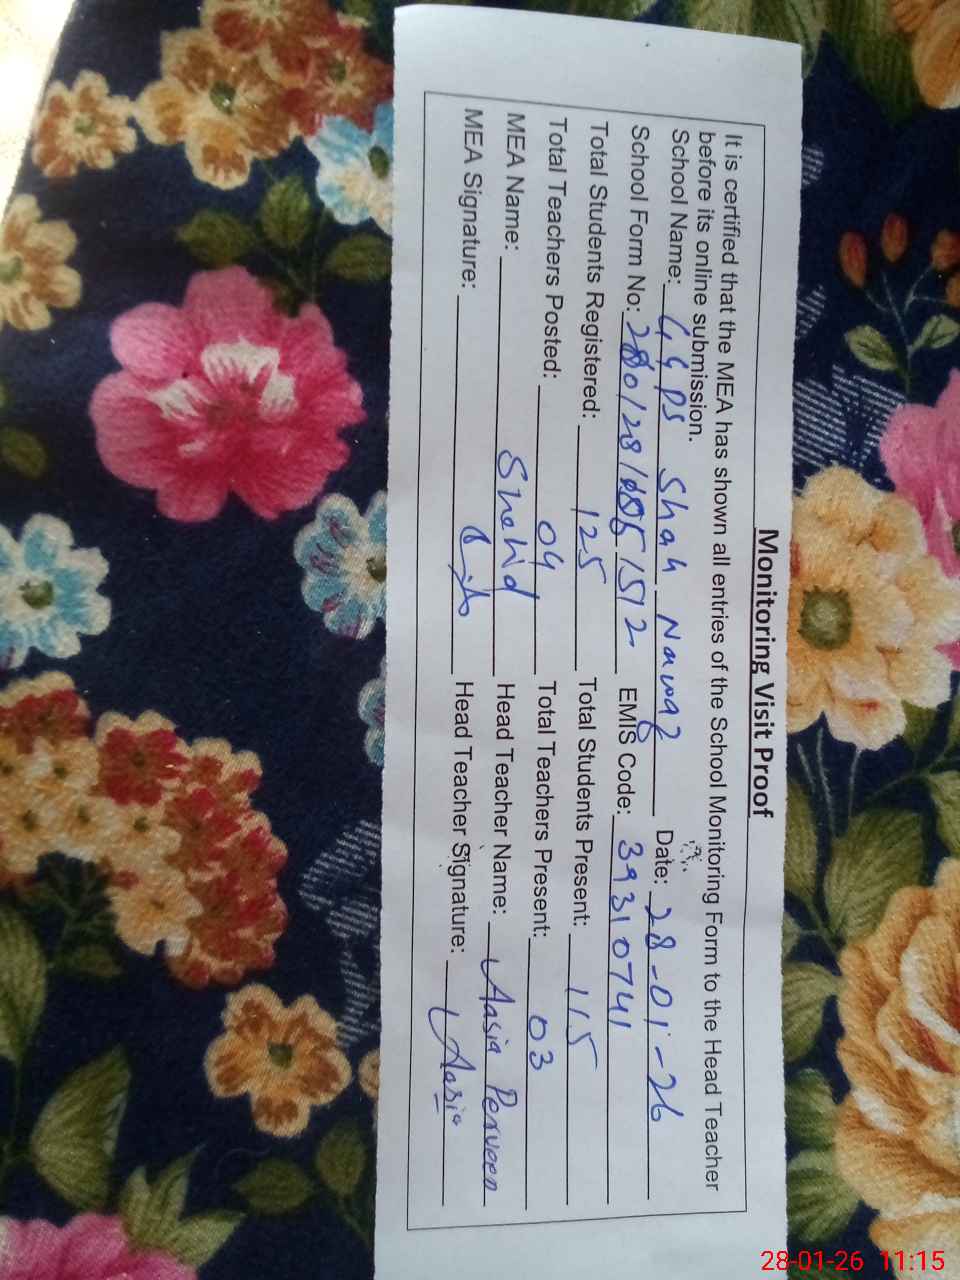 Monitoring Visit Proof
It is certified that the MEA has shown all entries of the School Monitoring Form to the Head Teacher
before its online submission.
School Name: GGPS Shah Nawaz Date: 28-01-26
School Form No: EMIS Code: 39310741
Total Students Registered: 125 Total Students Present: 115
Total Teachers Posted: 04 Total Teachers Present: 03
MEA Name: Shahid Head Teacher Name: Aasia Perveen
MEA Signature: Head Teacher Signature: Aasia
28-01-26 11:15